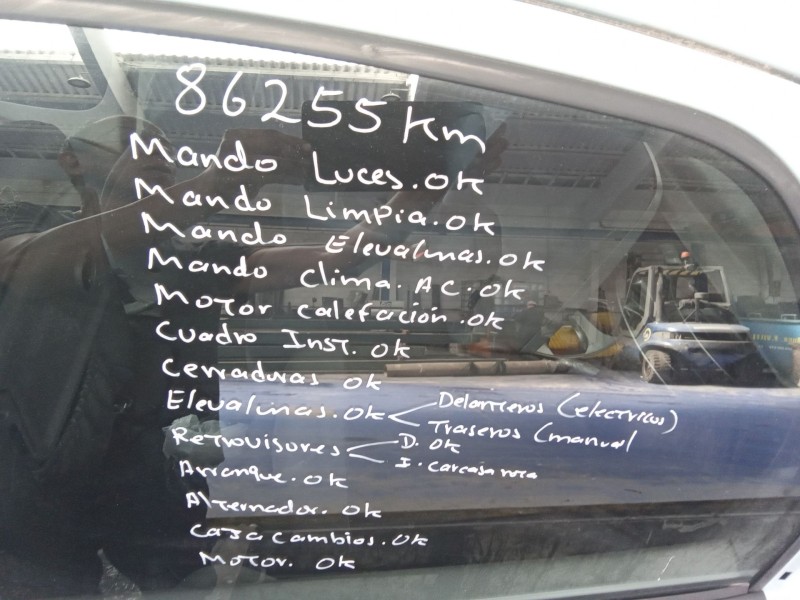 86255 km
Mando Luces. ok
Mando Limpia. ok
Mando Elevalunas. ok
Mando clima. AC. ok
Motor calefación. ok
Cuadro Inst. ok
Cerraduras ok
Elevalunas. ok Delanteros (electricos)
Traseros (manual
Retrovisores D. ok
I. carcasa rota
Arranque. ok
Alternador. ok
Caja cambios. ok
Motor. ok